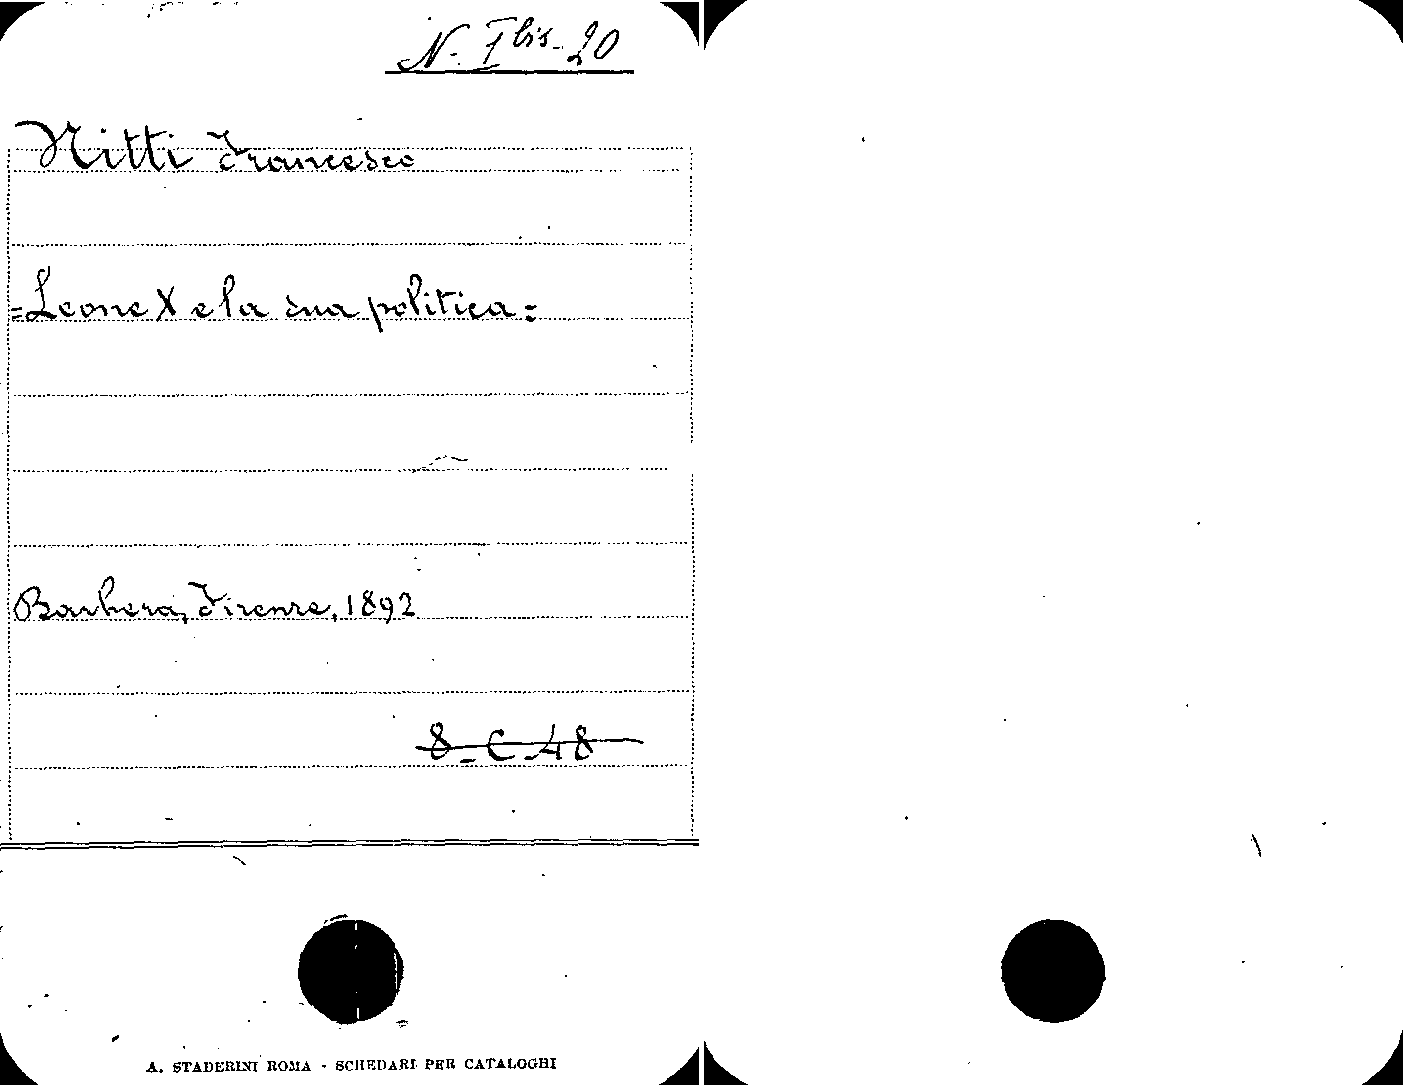 N. I bis - 20
Nitti Francesco
=Leone X e la sua politica=
Barbera, Firenze, 1892
8-C-48
A. STADERINI ROMA - SCHEDARI PER CATALOGHI